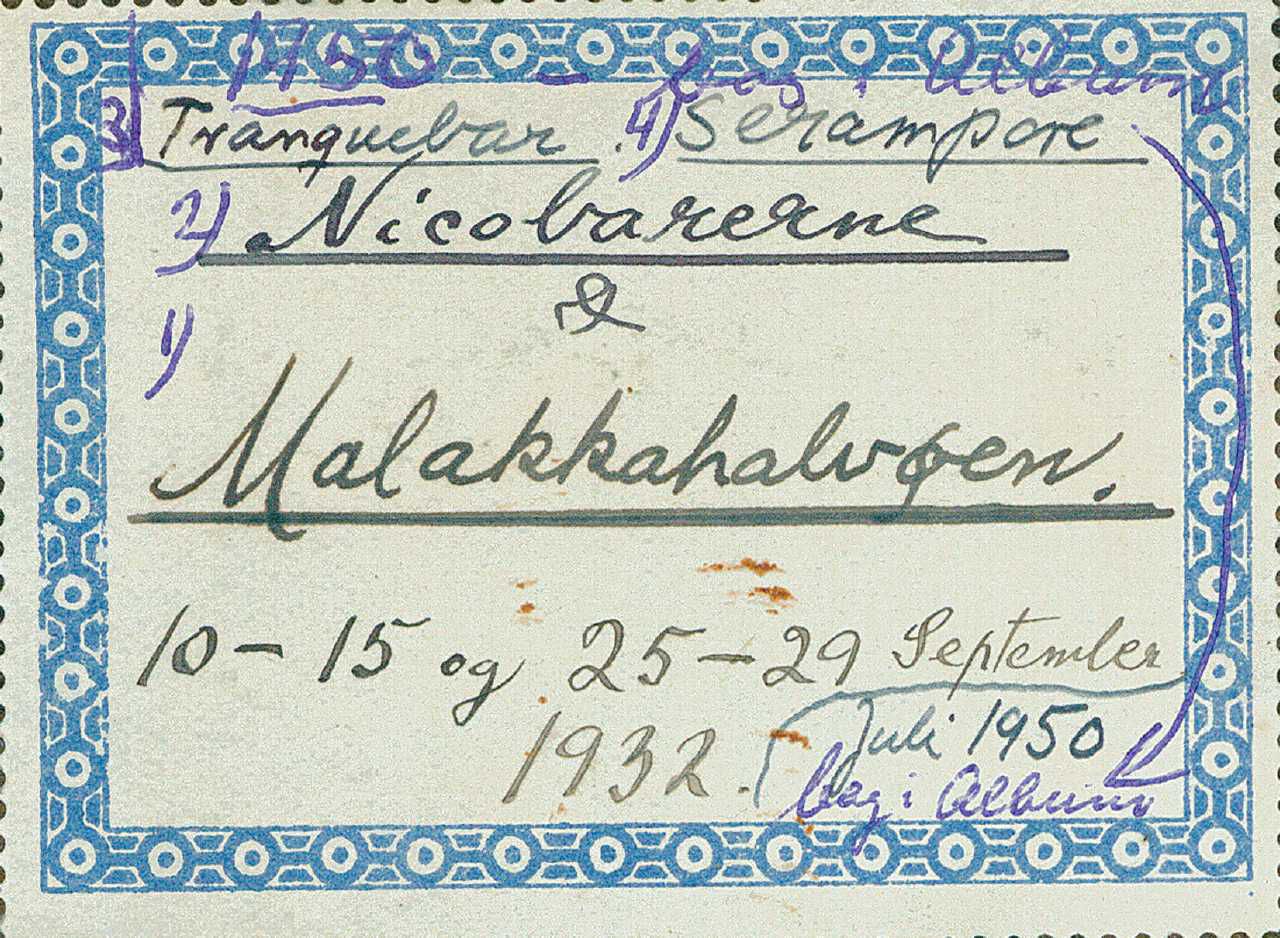 1950 - bag i Album
3) Tranquebar . 4) Serampore
2) Nicobarerne
&
1) Malakkahalvøen.
10 - 15 og 25 - 29 September
1932. Juli 1950
bag i Album